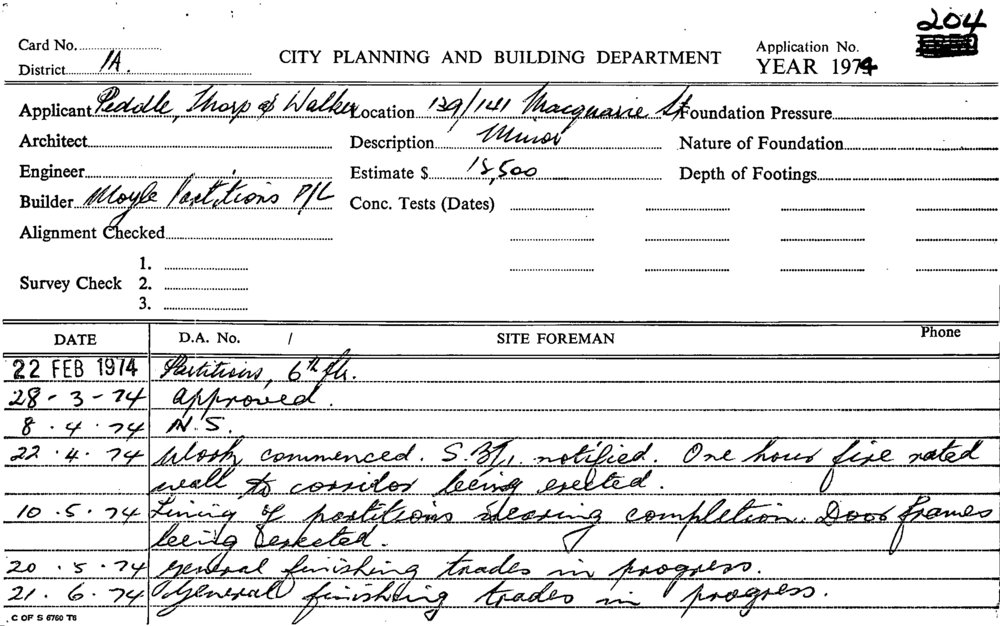 204
Card No.
District 1A.
CITY PLANNING AND BUILDING DEPARTMENT
Application No.
YEAR 1974
Applicant Peddle, Thorp & Walker Location 139/141 Macquarie St Foundation Pressure
Architect Description Minor Nature of Foundation
Engineer Estimate $ 18,500 Depth of Footings
Builder Moyle Partitions P/L Conc. Tests (Dates)
Alignment Checked
1.
Survey Check 2.
3.
DATE D.A. No. / SITE FOREMAN Phone
22 FEB 1974 Partitions, 6th flr.
28-3-74 approved.
8.4.74 N.S.
22.4.74 Work commenced. notified. One hour fire rated
wall to corridor being erected.
10.5.74 Lining of partitions nearing completion. Door frames
being erected.
20.5.74 general finishing trades in progress.
21.6.74 General finishing trades in progress.
C OF S 6760 T6